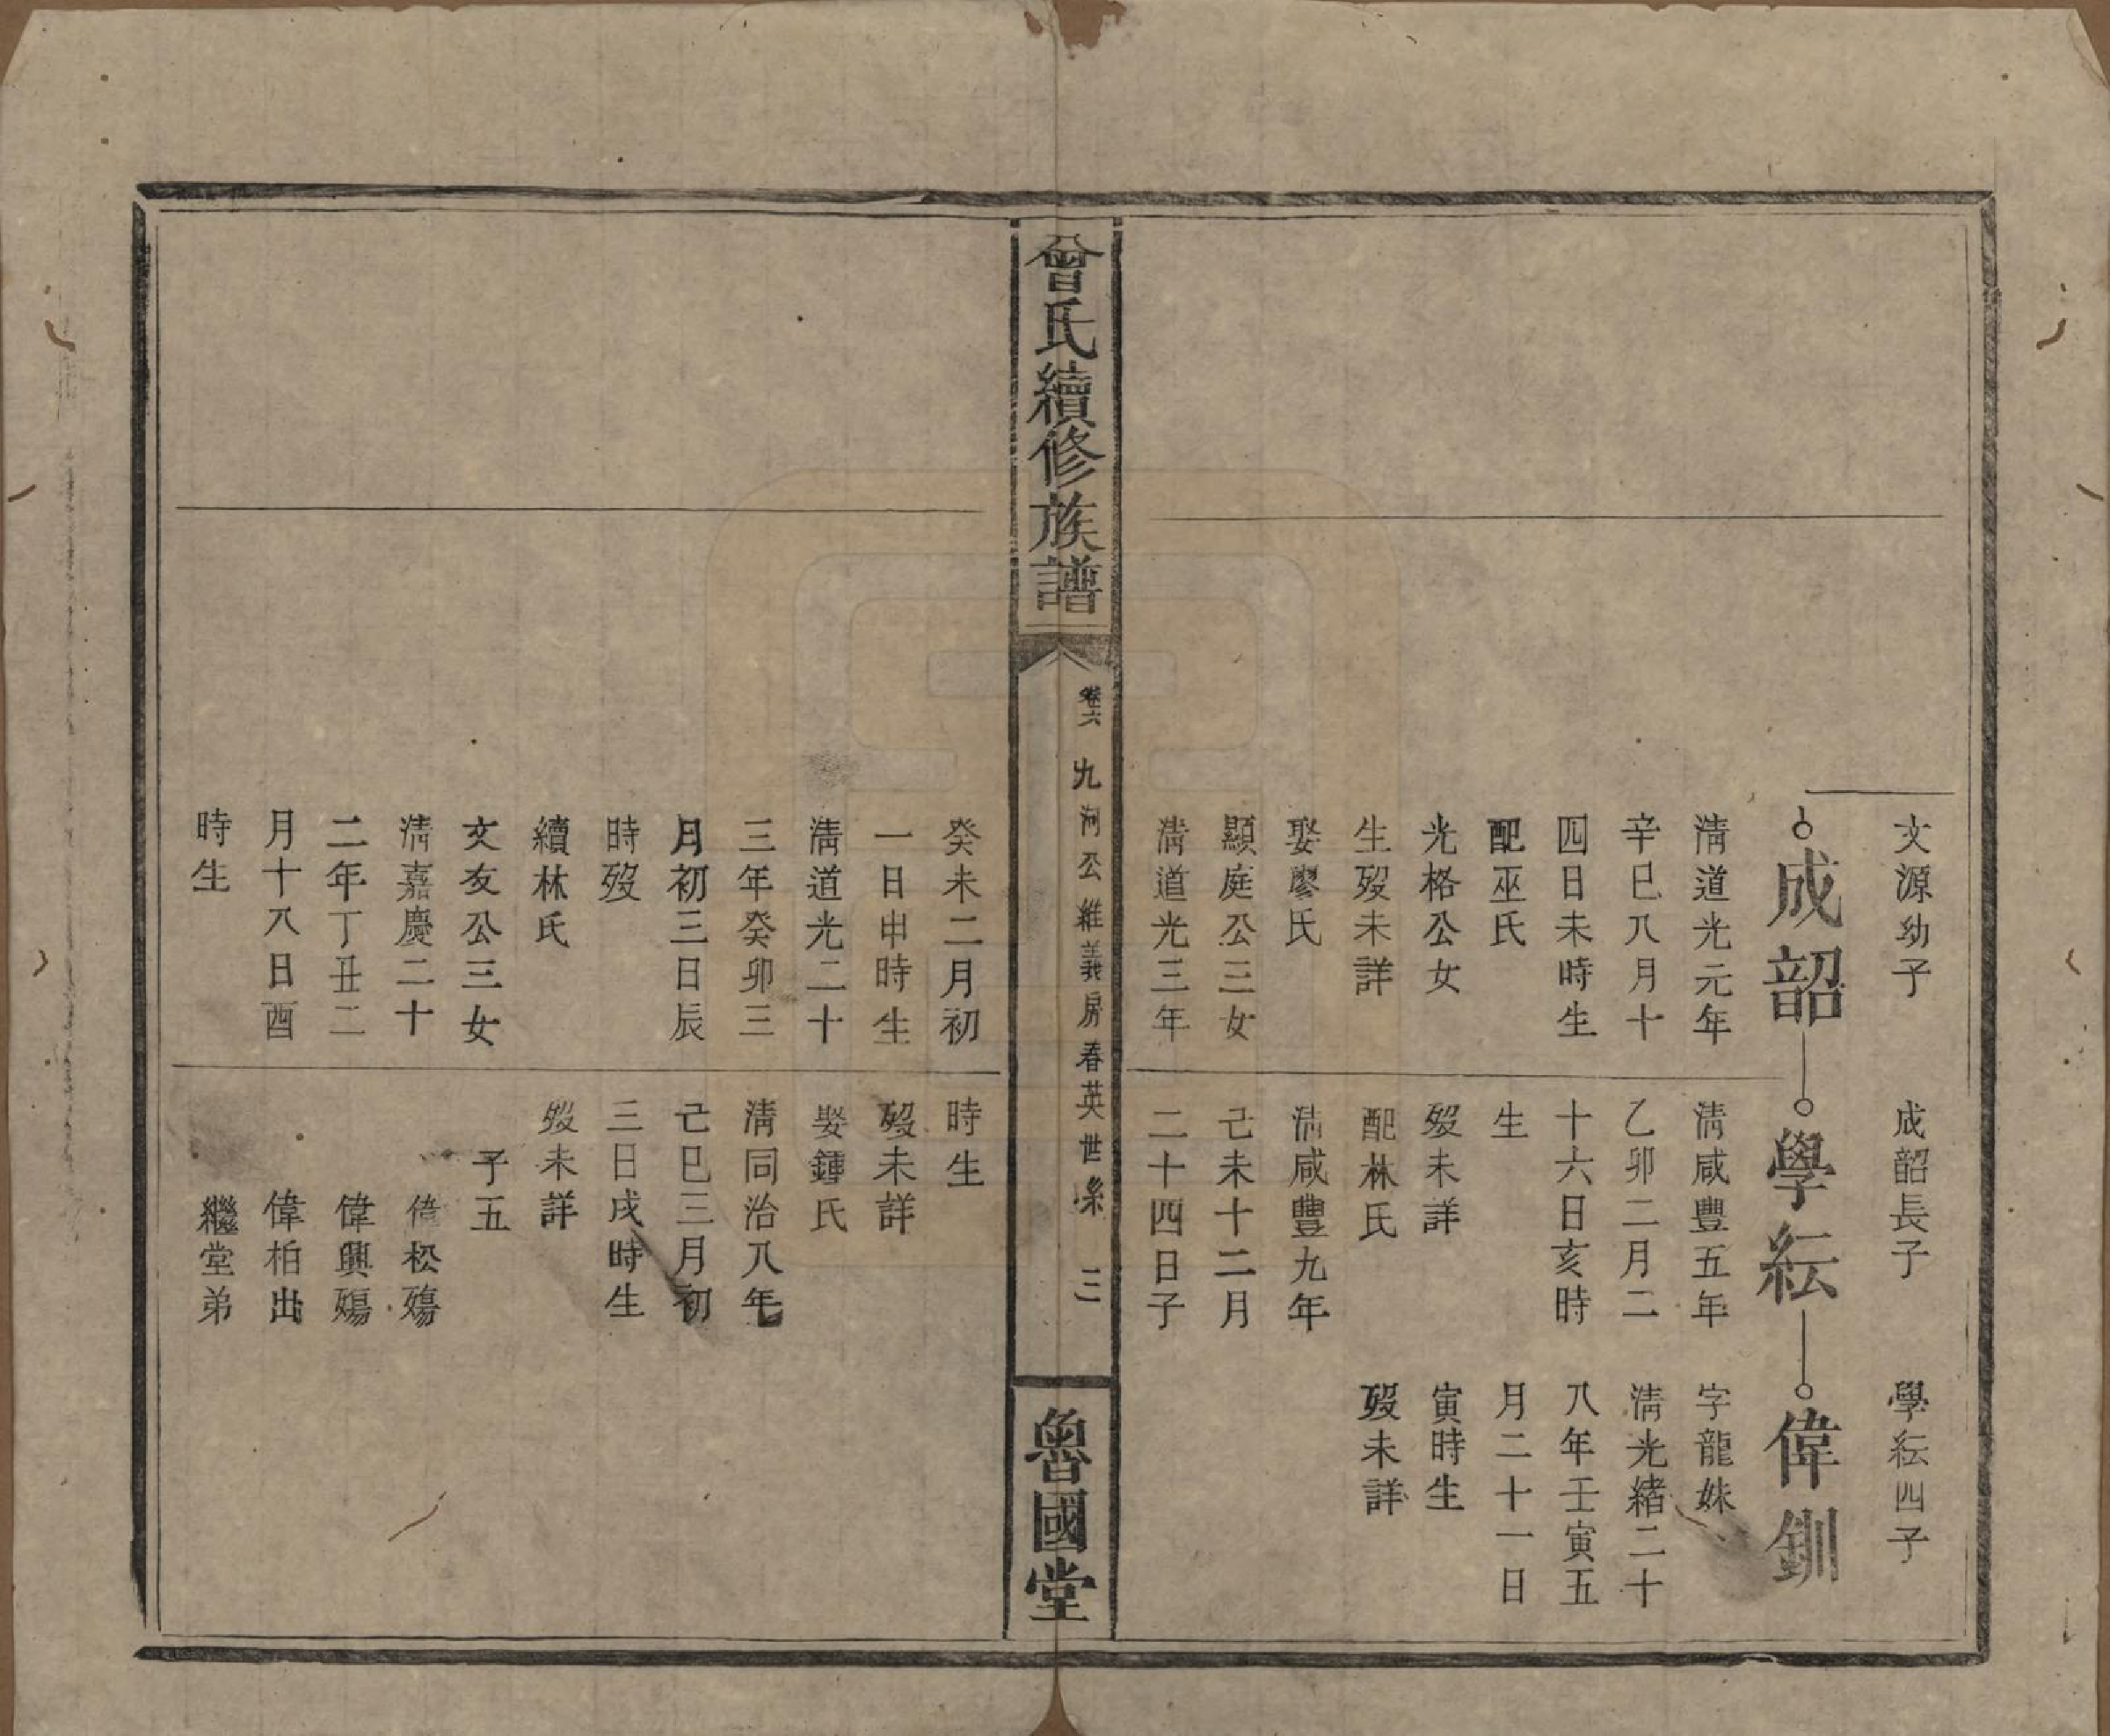 文源幼子
成韶
清道光元年
辛巳八月十
四日未時生
配巫氏
光格公女
生歿未詳
娶廖氏
顯庭公三女
清道光三年
癸未二月初
一日申時生
清道光二十
三年癸卯三
月初三日辰
時歿
續林氏
文友公三女
清嘉慶二十
二年丁丑二
月十八日酉
時生
成韶長子
學紜
清咸豐五年
乙卯二月二
十六日亥時
生
歿未詳
配林氏
清咸豐九年
己未十二月
二十四日子
時生
歿未詳
娶鍾氏
清同治八年
己巳三月初
三日戌時生
歿未詳
子五
偉松殤
偉興殤
偉柏出
繼堂弟
學紜四子
偉釧
字龍妹
清光緒二十
八年壬寅五
月二十一日
寅時生
歿未詳
曾氏續修族譜
卷六 九河公維義房春英世系 三
魯國堂